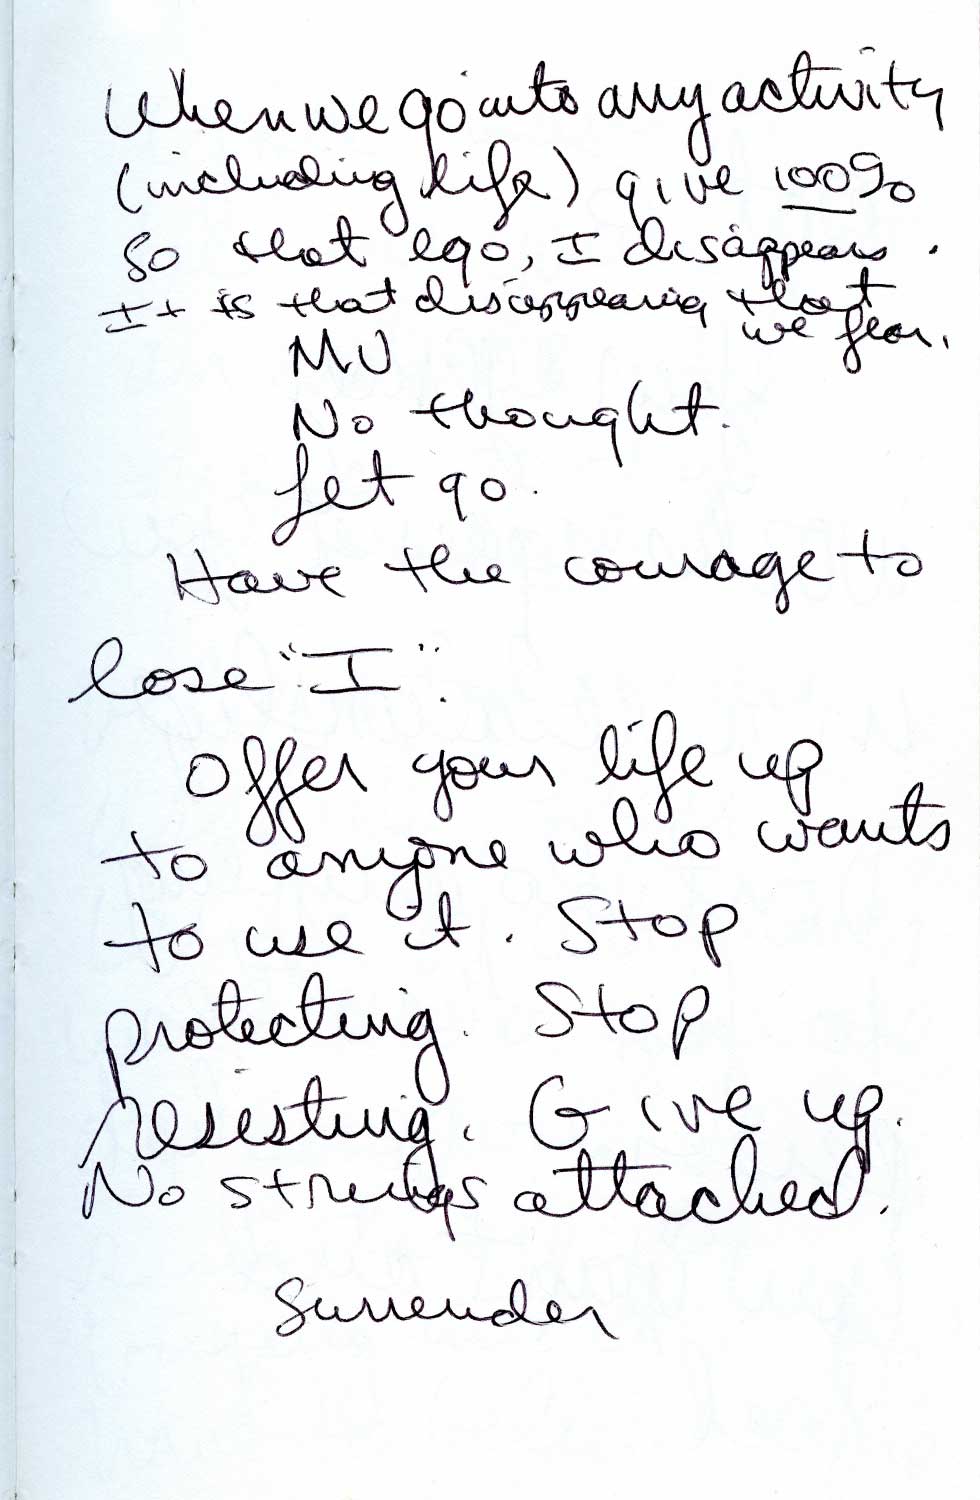 When we go into any activity
(including life) give 100%
so that ego, I disappears.
It is that disappearing that
we fear.
MU
No thought.
Let go.
Have the courage to
lose "I".
Offer your life up
to anyone who wants
to use it. Stop
protecting. Stop
resisting. Give up.
No strings attached.
Surrender